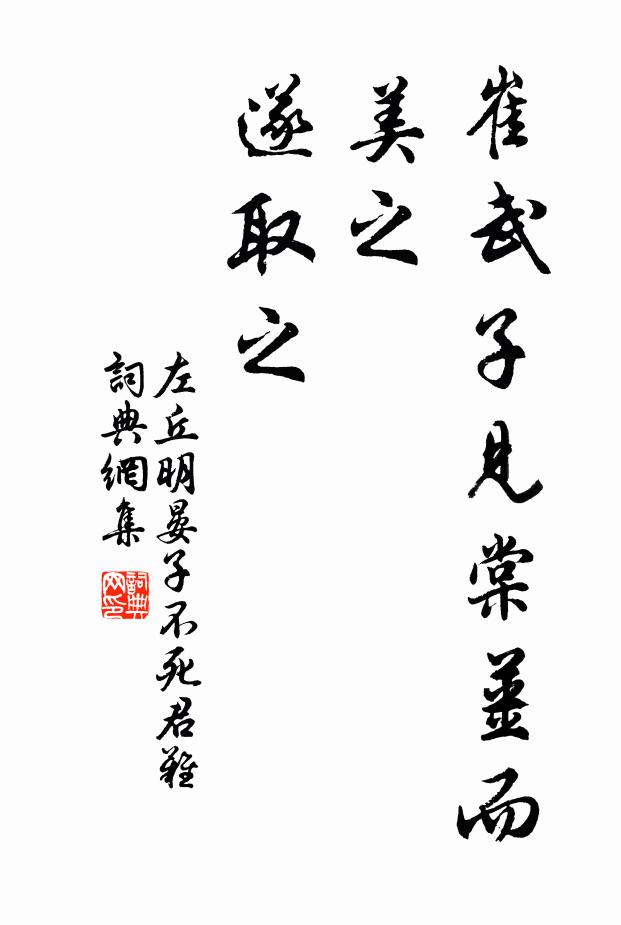 崔武子見棠薑而
美之
遂取之
左丘明晏子不死君難
詞典網集
詞典网印